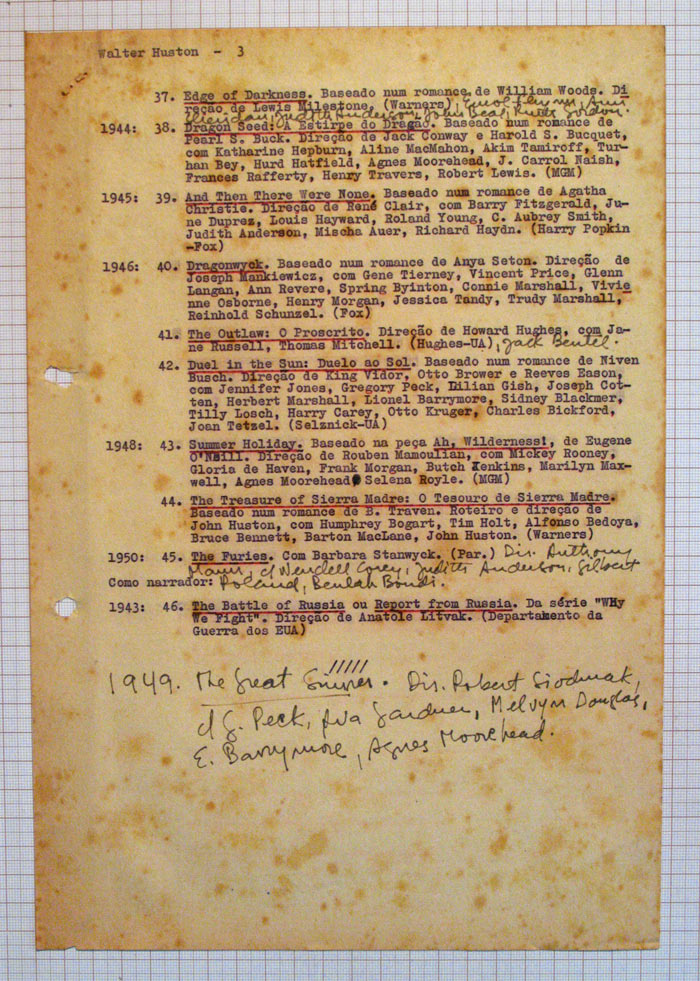 Walter Huston - 3
37. Edge of Darkness. Baseado num romance de William Woods. Di
reção de Lewis Milestone. (Warners), Errol Flynn, Ann
Sheridan, Judith Anderson, John Beal, Ruth Gordon.
1944: 38. Dragon Seed: A Estirpe do Dragão. Baseado num romance de
Pearl S. Buck. Direção de Jack Conway e Harold S. Bucquet,
com Katharine Hepburn, Aline MacMahon, Akim Tamiroff, Tur-
han Bey, Hurd Hatfield, Agnes Moorehead, J. Carrol Naish,
Frances Rafferty, Henry Travers, Robert Lewis. (MGM)
1945: 39. And Then There Were None. Baseado num romance de Agatha
Christie. Direção de René Clair, com Barry Fitzgerald, Ju-
ne Duprez, Louis Hayward, Roland Young, C. Aubrey Smith,
Judith Anderson, Mischa Auer, Richard Haydn. (Harry Popkin
-Fox)
1946: 40. Dragonwyck. Baseado num romance de Anya Seton. Direção de
Joseph Mankiewicz, com Gene Tierney, Vincent Price, Glenn
Langan, Ann Revere, Spring Byinton, Connie Marshall, Vivie
nne Osborne, Henry Morgan, Jessica Tandy, Trudy Marshall,
Reinhold Schunzel. (Fox)
41. The Outlaw: O Proscrito. Direção de Howard Hughes, com Ja-
ne Russell, Thomas Mitchell. (Hughes-UA), Jack Beutel.
42. Duel in the Sun: Duelo ao Sol. Baseado num romance de Niven
Busch. Direção de King Vidor, Otto Brower e Reeves Eason,
com Jennifer Jones, Gregory Peck, Lilian Gish, Joseph Cot-
ten, Herbert Marshall, Lionel Barrymore, Sidney Blackmer,
Tilly Losch, Harry Carey, Otto Kruger, Charles Bickford,
Joan Tetzel. (Selznick-UA)
1948: 43. Summer Holiday. Baseado na peça Ah, Wilderness!, de Eugene
O'Neill. Direção de Rouben Mamoulian, com Mickey Rooney,
Gloria de Haven, Frank Morgan, Butch Jenkins, Marilyn Max-
well, Agnes Moorehead Selena Royle. (MGM)
44. The Treasure of Sierra Madre: O Tesouro de Sierra Madre.
Baseado num romance de B. Traven. Roteiro e direção de
John Huston, com Humphrey Bogart, Tim Holt, Alfonso Bedoya,
Bruce Bennett, Barton MacLane, John Huston. (Warners)
1950: 45. The Furies. Com Barbara Stanwyck. (Par.) Dir. Anthony
Mann, c/ Wendell Corey, Judith Anderson, Gilbert
Como narrador: Roland, Beulah Bondi.
1943: 46. The Battle of Russia ou Report from Russia. Da série "WHy
We Fight". Direção de Anatole Litvak. (Departamento da
Guerra dos EUA)
1949. The Great Sinner. Dir. Robert Siodmak,
c/ G. Peck, Ava Gardner, Melvyn Douglas,
E. Barrymore, Agnes Moorehead.